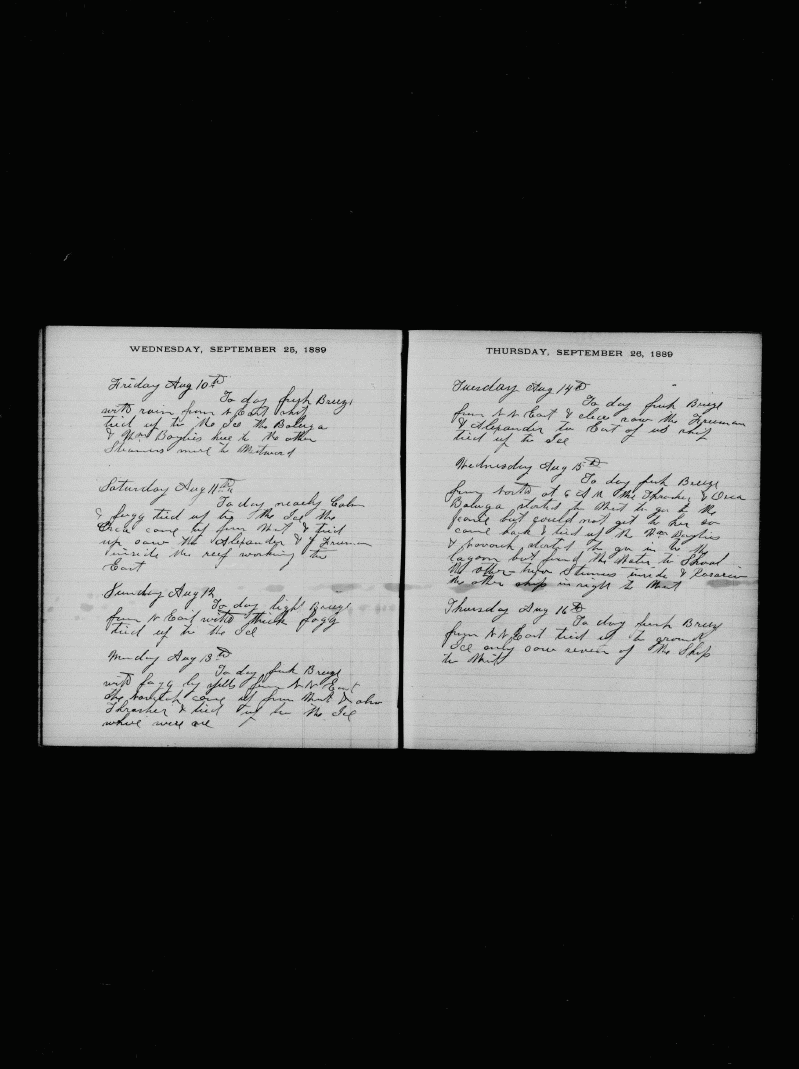 WEDNESDAY, SEPTEMBER 25, 1889
Friday Aug 10th
To day fresh Breeze
with rain from N East
tied up to the Ice the Baluga
& Wm Baylies here to the other
Steamers more to Westward
Saturday Aug 11th
To day nearly Calm
& fogg tied up to the Ice the
Orca came up from West & tied
up saw the Alexander & J Freeman
inside the reef working to
East
Sunday Aug 12
To day light Breeze
from N East with thick fogg
tied up to the Ice
Monday Aug 13th
To day fresh Breeze
with fogg by spells from N N East
the came up from West & also
Thrasher & tied up to the Ice
where were we
THURSDAY, SEPTEMBER 26, 1889
Tuesday Aug 14th
To day fresh Breeze
from N N East & clear saw the Freeman
& Alexander to East of us
tied up to Ice
Wednesday Aug 15th
To day fresh Breeze
from North at 6 A M the Thrasher & Orca
Baluga started for West to go to the
but could not get to her so
came back & tied up the Wm Baylies
& started to go in to the
lagoon but found the Water to Shoal
the other two Steamers inside &
the other ship in right to West
Thursday Aug 16th
To day fresh Breeze
from N N East tied up to ground
Ice only saw seven of the Ship
to West